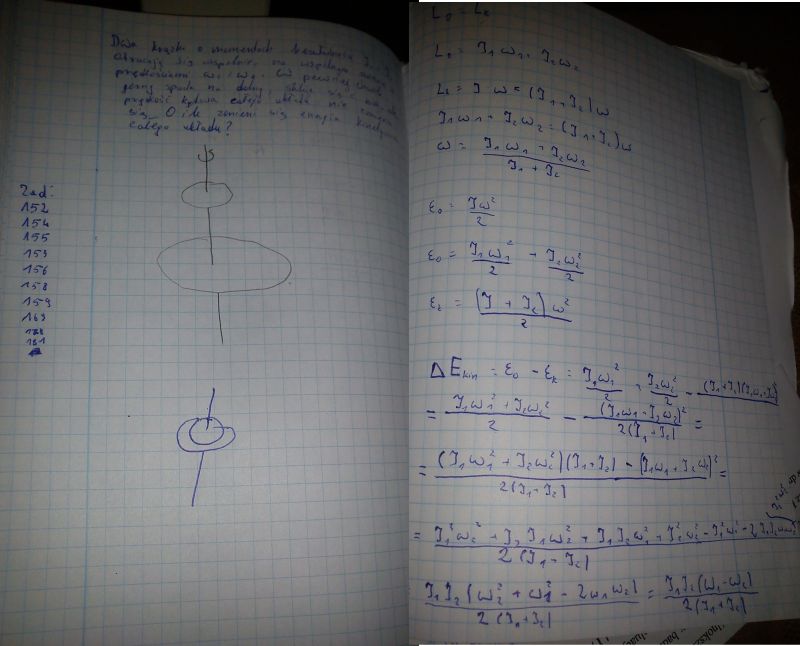 Dwa krążki o momentach bezwładności I₁ I
obracają się współosiowo na wspólnej
prędkościami ω₁ i ω₂. W pewnej chwili
górny spada na dolny, skleja się
prędkość kątowa całego układu nie
się. O ile zmieni się energia kinet
całego układu?
Zad:
152
154
155
153
156
158
159
163
L₀ = Lₖ
L₀ = I₁ω₁ + I₂ω₂
Lₖ = I ω = (I₁+I₂)ω
I₁ω₁ + I₂ω₂ = (I₁+I₂)ω
ω = (I₁ω₁ + I₂ω₂)/(I₁ + I₂)
E₀ = Iω²/2
E₀ = I₁ω₁²/2 + I₂ω₂²/2
Eₖ = (I + I₂) ω²/2
ΔE kin = E₀ - Eₖ = I₁ω₁²/2 + I₂ω₂²/2 -
= (I₁ω₁² + I₂ω₂²)/2 - (I₁ω₁+I₂ω₂)²/2(I₁+I₂) =
= ((I₁ω₁² + I₂ω₂²)(I₁+I₂) - (I₁ω₁+I₂ω₂)²)/2(I₁+I₂) =
= 2(I₁+I₂)
I₁I₂(ω₂² + ω₁² - 2ω₁ω₂)/2(I₁+I₂) = I₁I₂(ω₁-ω₂)/2(I₁+I₂)